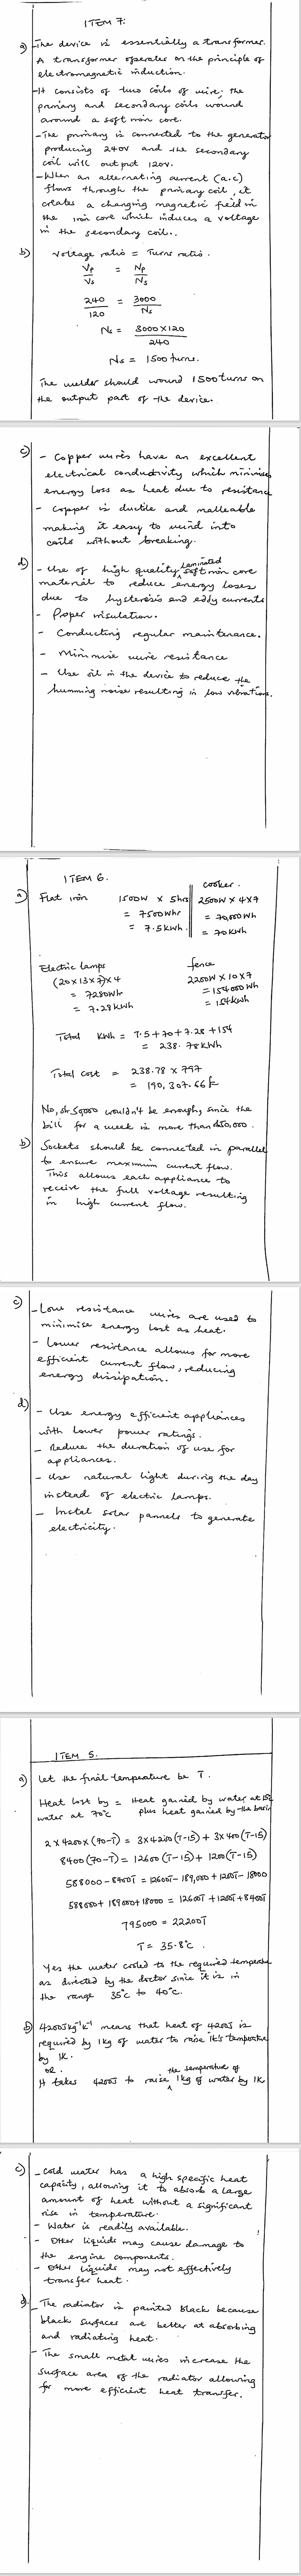 ITEM 7:
a) The device is essentially a transformer.
A transformer operates on the principle of
electromagnetic induction.
- It consists of two coils of wire; the
primary and secondary coils wound
around a soft iron core.
- The primary is connected to the generator
producing 240V and the secondary
coil will output 120V.
- When an alternating current (a.c)
flows through the primary coil, it
creates a changing magnetic field in
the iron core which induces a voltage
in the secondary coil.
b) Voltage ratio = Turns ratio.
Vp/Vs = Np/Ns
240/120 = 3000/Ns
Ns = 3000 x 120 / 240
Ns = 1500 turns.
The welder should wound 1500 turns on
the output part of the device.
c) - Copper wires have an excellent
electrical conductivity which minimises
energy loss as heat due to resistance
- Copper is ductile and malleable
making it easy to wind into
coils without breaking.
d) - Use of high quality laminated soft iron core
material to reduce energy loses
due to hysteresis and eddy currents
- Proper insulation.
- Conducting regular maintenance.
- Minimise wire resistance
- Use oil in the device to reduce the
humming noise resulting in low vibrations.
ITEM 6.
a) Flat iron 1500W x 5hrs
= 7500Whr
= 7.5kWh.
cooker.
2500W x 4 x 7
= 70,000Wh
= 70kWh
Electric lamps
(20 x 13 x 7) x 4
= 7280Whr
= 7.28kWh
fence
2200W x 10 x 7
= 154000Wh
= 154kWh
Total kWh = 7.5 + 70 + 7.28 + 154
= 238.78kWh
Total cost = 238.78 x 797
= 190,307.66
No, sh 50000 wouldn't be enough, since the
bill for a week is more than 50,000.
b) Sockets should be connected in parallel
to ensure maximum current flow.
This allows each appliance to
receive the full voltage resulting
in high current flow.
c) - Low resistance wires are used to
minimise energy lost as heat.
- Lower resistance allows for more
efficient current flow, reducing
energy dissipation.
d) - Use energy efficient appliances
with lower power ratings.
- Reduce the duration of use for
appliances.
- Use natural light during the day
instead of electric lamps.
- Instal solar pannels to generate
electricity.
ITEM 5.
a) Let the final temperature be T.
Heat lost by = Heat gained by water at 15°C
water at 70°C plus heat gained by the basin
2 x 4200 x (70-T) = 3 x 4200 (T-15) + 3 x 400 (T-15)
8400 (70-T) = 12600 (T-15) + 1200 (T-15)
588000 - 8400T = 12600T - 189,000 + 1200T - 18000
588000 + 189000 + 18000 = 12600T + 1200T + 8400T
795000 = 22200T
T = 35.8°C.
Yes the water cooled to the required temperature
as directed by the doctor since it is in
the range 35°C to 40°C.
b) 4200Jkg⁻¹K⁻¹ means that heat of 4200J is
required by 1kg of water to raise it's temperature
by 1K.
OR.
It takes 4200J to raise the temperature of 1kg of water by 1K
c) - Cold water has a high specific heat
capacity, allowing it to absorb a large
amount of heat without a significant
rise in temperature.
- Water is readily available.
- Other liquids may cause damage to
the engine components.
- Other liquids may not effectively
transfer heat.
d) - The radiator is painted black because
black surfaces are better at absorbing
and radiating heat.
- The small metal wires increase the
surface area of the radiator allowing
for more efficient heat transfer.